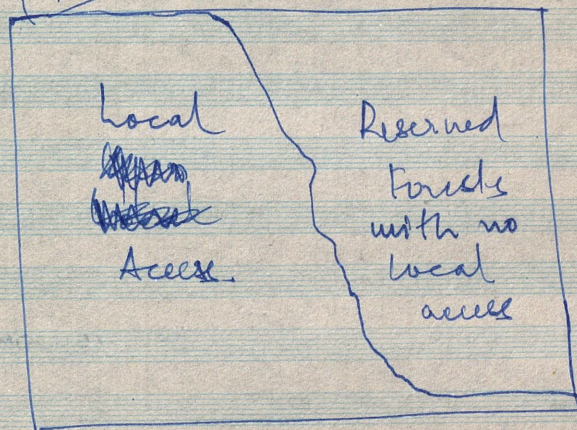 Local
Access.
Reserved
Forests
with no
local
access